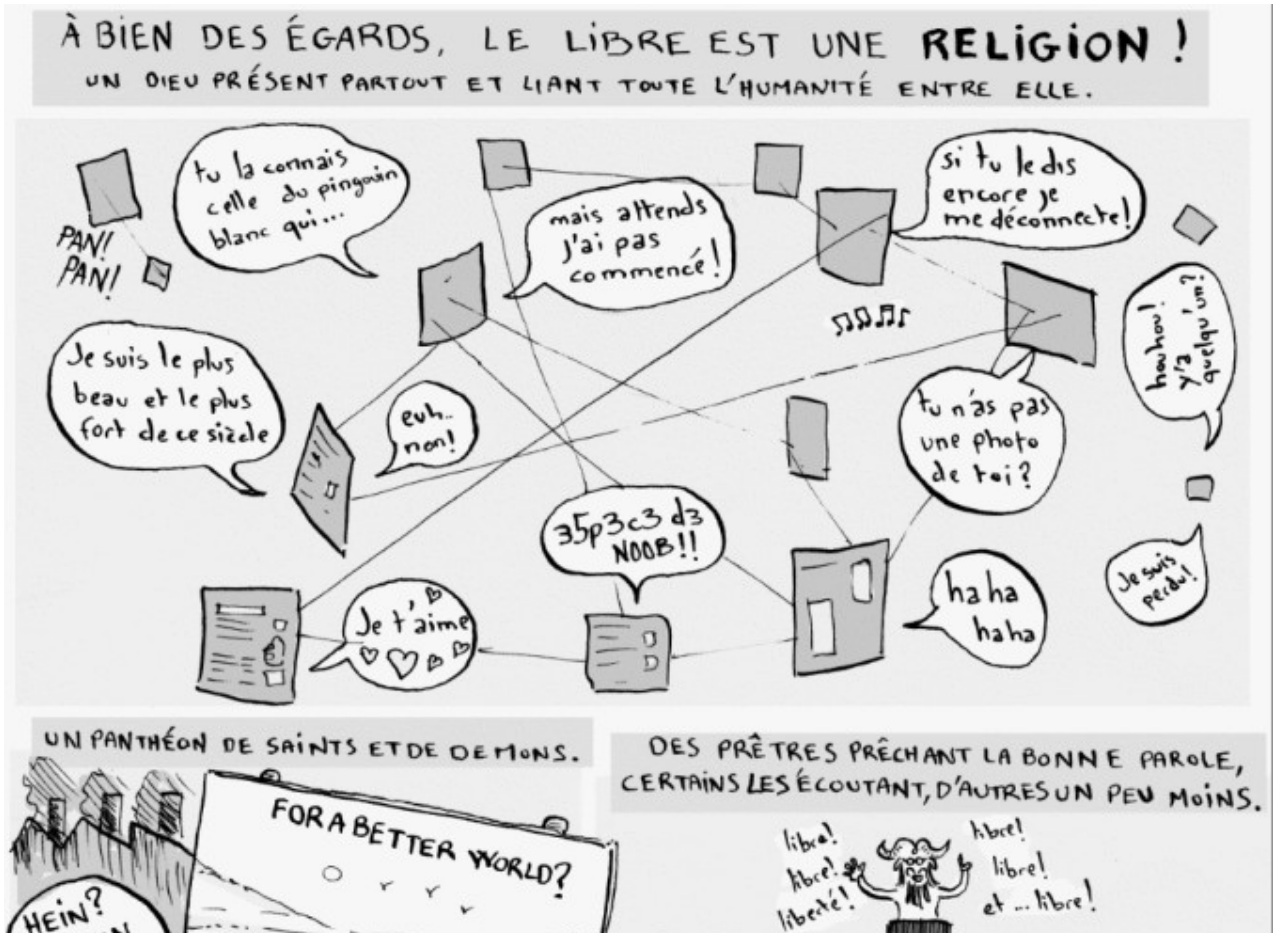 À BIEN DES ÉGARDS, LE LIBRE EST UNE RELIGION !
UN DIEU PRÉSENT PARTOUT ET LIANT TOUTE L'HUMANITÉ ENTRE ELLE.
PAN!
PAN!
tu la connais
celle du pingouin
blanc qui...
mais attends
j'ai pas
commencé!
si tu le dis
encore je
me déconnecte!
houhou!
y'a
quelqu'un?
Je suis le plus
beau et le plus
fort de ce siècle
euh..
non!
tu n'as pas
une photo
de toi?
35p3c3 d3
NOOB!!
Je suis
perdu!
Je t'aime
ha ha
ha ha
UN PANTHÉON DE SAINTS ET DE DEMONS.
FOR A BETTER WORLD?
HEIN?
DES PRÊTRES PRÊCHANT LA BONNE PAROLE,
CERTAINS LES ÉCOUTANT, D'AUTRES UN PEU MOINS.
libre!
libre!
liberté!
libre!
libre!
et ... libre!